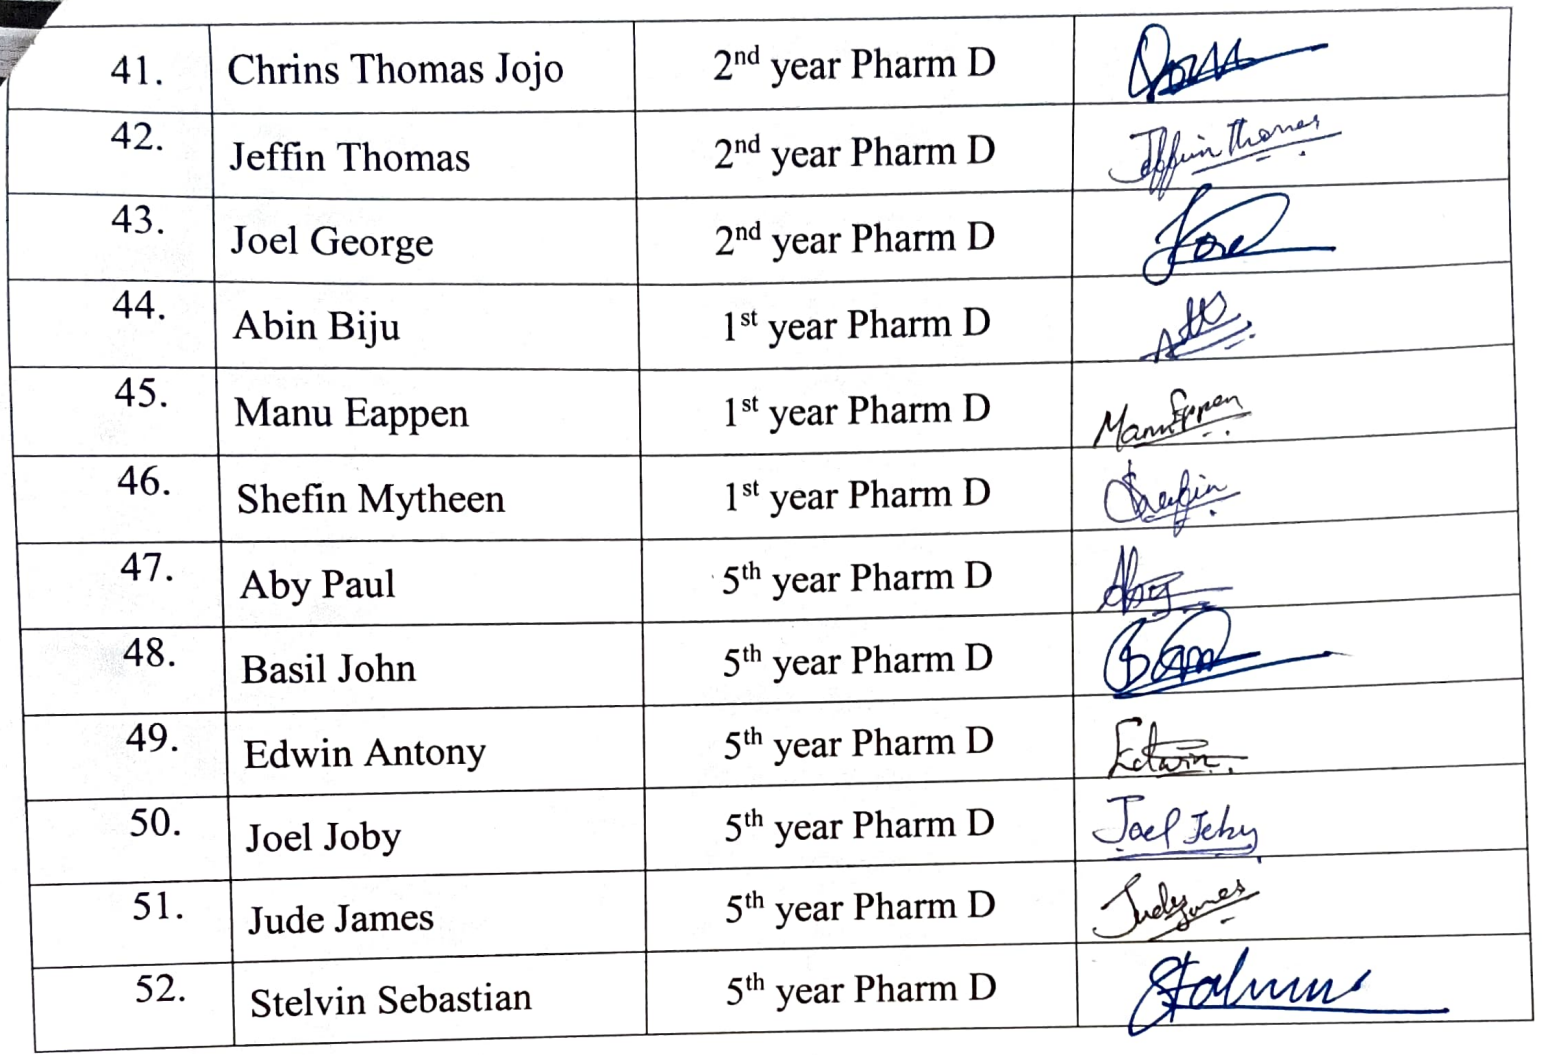 41. Chrins Thomas Jojo 2nd year Pharm D
42. Jeffin Thomas 2nd year Pharm D Jeffin Thomas
43. Joel George 2nd year Pharm D
44. Abin Biju 1st year Pharm D
45. Manu Eappen 1st year Pharm D Manu Eppen
46. Shefin Mytheen 1st year Pharm D
47. Aby Paul 5th year Pharm D
48. Basil John 5th year Pharm D
49. Edwin Antony 5th year Pharm D Edwin
50. Joel Joby 5th year Pharm D Joel
51. Jude James 5th year Pharm D Jude James
52. Stelvin Sebastian 5th year Pharm D